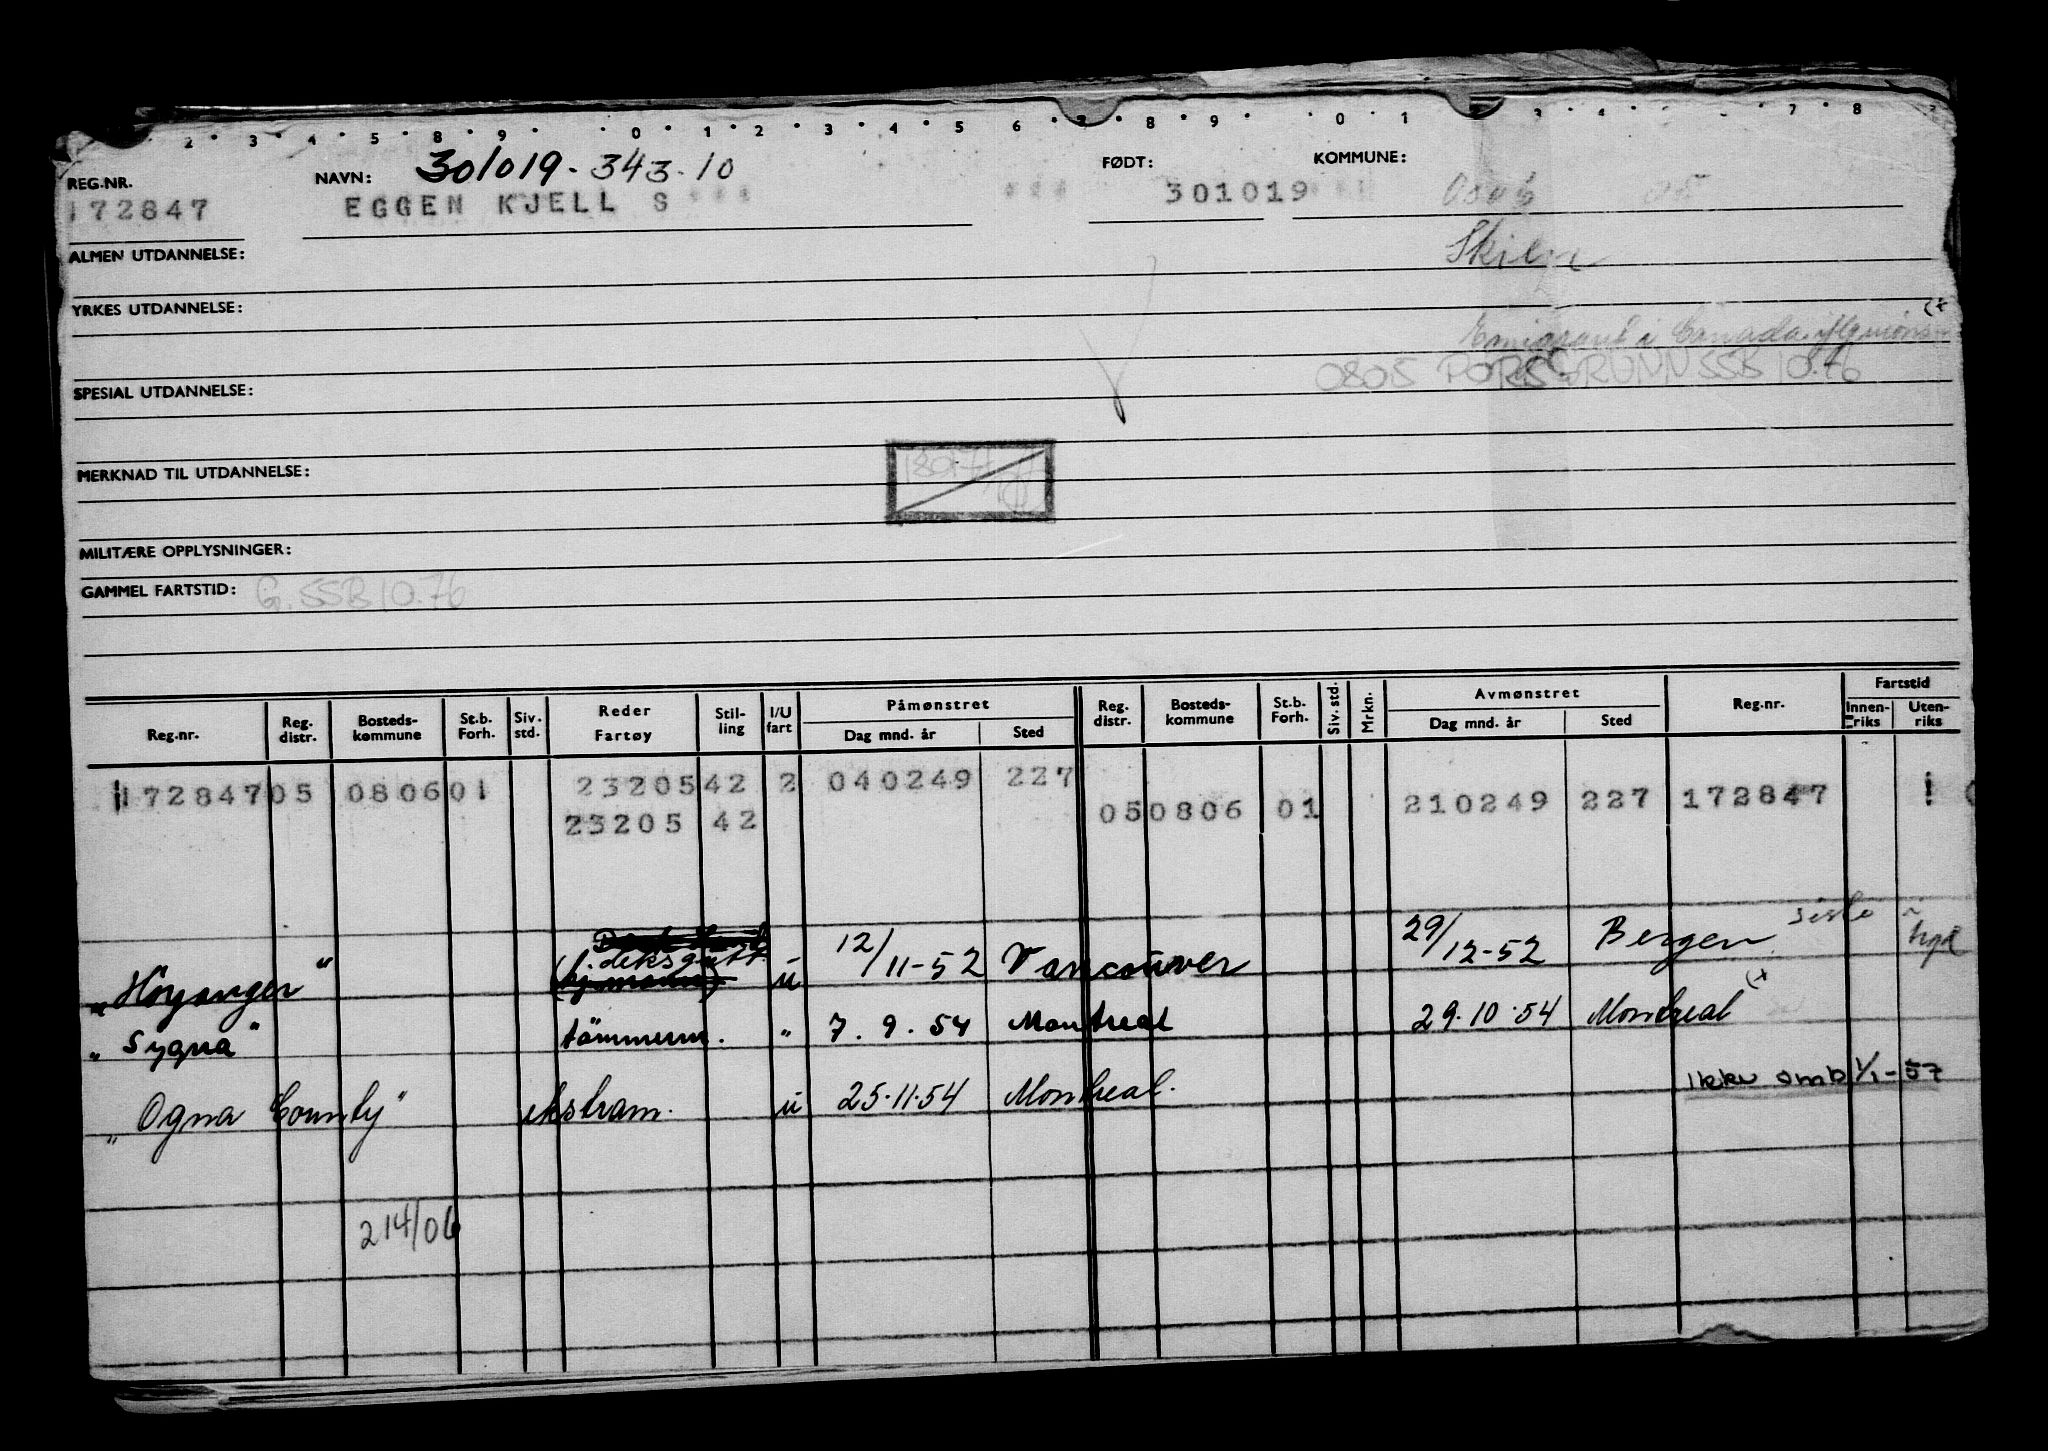 2 3 4 5 8 9 0 1 2 3 4 5 6 7 8 9 0 1 2 3 4 7 8
REG.NR. NAVN: 301019-343.10 FØDT: KOMMUNE:
172847 EGGEN KJELL S *** *** 301019
ALMEN UTDANNELSE: Skien
YRKES UTDANNELSE: (+
Emigrant i Canada
0805 PORSGRUNN SSB 10.76
SPESIAL UTDANNELSE:
MERKNAD TIL UTDANNELSE:
MILITÆRE OPPLYSNINGER:
GAMMEL FARTSTID: G. SSB 10.76
Reg.nr. Reg. distr. Bosteds- kommune St.b. Forh. Siv. std. Reder Fartøy Stil- ling I/U fart Påmønstret Dag mnd. år Sted Reg. distr. Bosteds- kommune St.b. Forh. Siv. std. Mrkn. Avmønstret Dag mnd. år Sted Reg.nr. Fartstid Innen- riks Uten- riks
172847 05 0806 01 23205 42 2 040249 227
23205 42 05 0806 01 210249 227 172847 1
"Höyanger" deksgutt u 12/11-52 Vancouver 29/12-52 Bergen siste
"Sygna" tömmerm. " 7.9.54 Montreal 29.10.54 Montreal (+
"Ogna County" ekstram. u 25.11.54 Montreal. Ikke omb 1/1-57
214/06